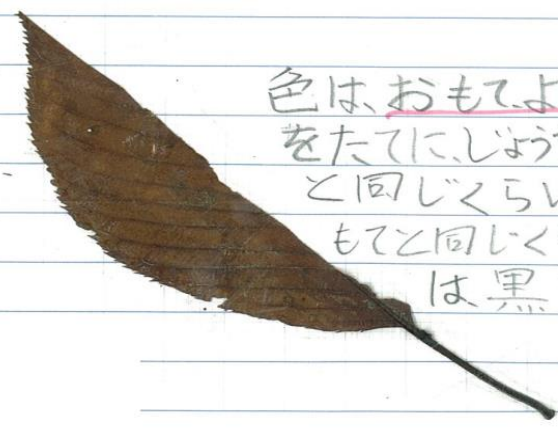 色は、おもて、よ
をたてに、じょう
と同じくらい
もてと同じく
は、黒